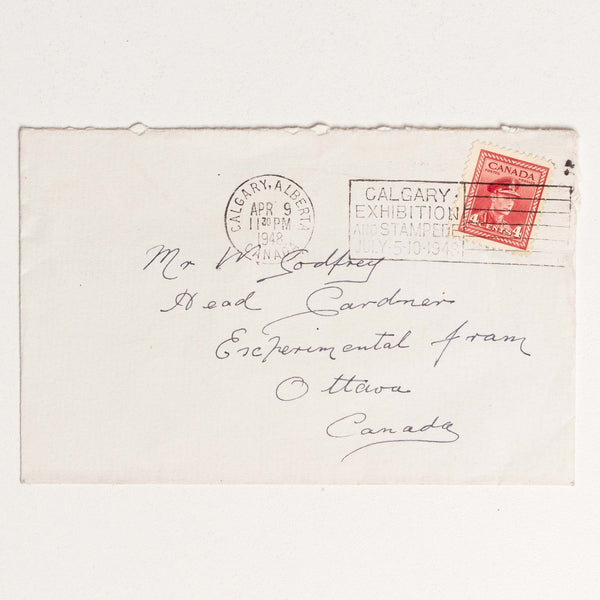 CALGARY, ALBERTA
APR 9
11 30 PM
1948
CANADA
CALGARY
EXHIBITION
AND STAMPEDE
JULY 5-10-1948
CANADA
4 CENTS 4
Mr W. Godfrey
Head Gardner
Escperimental fram
Ottawa
Canada